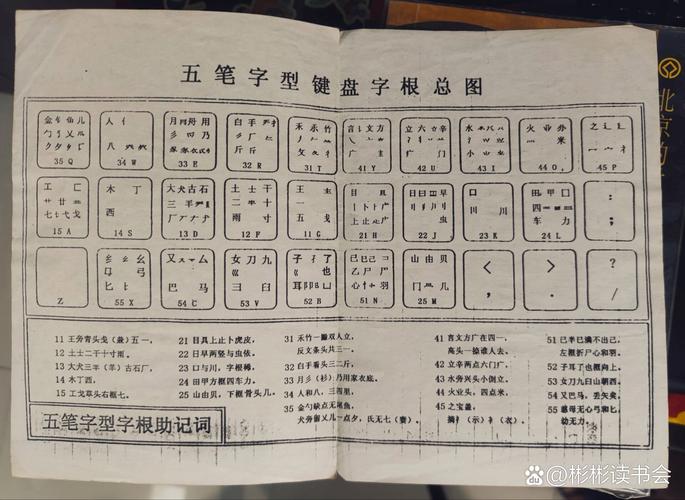 五笔字型键盘字根总图
35 Q
人亻
八
34 W
月冃舟用
彡 乃
33 E
白手
斤
32 R
禾 竹
夂
31 T
言 文方
广
41 Y
立六 辛
门疒
42 U
水
小
43 I
火业
米
44 O
之辶廴
45 P
工匚
七弋戈
15 A
木丁
西
14 S
大犬古石
三
厂
13 D
土士干
二 十
雨寸
12 F
王
一
五
11 G
目
止
21 H
日曰 早
虫
22 J
口
川
23 K
田甲囗
四
车力
24 L
：
；
Z
纟 幺
弓
匕
55 X
又 厶
巴马
54 C
女刀九
巛
彐臼
53 V
子 了
也
耳阝凵
52 B
已己巳
乙尸
心忄羽
51 N
山由贝
冂 几
25 M
<
，
>
.
?
/
11 王旁青头戋（兼）五一，
12 土士二干十寸雨。
13 大犬三羊（羊）古石厂，
14 木丁西，
15 工戈草头右框七。
21 目具上止卜虎皮，
22 日早两竖与虫依。
23 口与川，字根稀，
24 田甲方框四车力。
25 山由贝，下框骨头几。
31 禾竹一撇双人立，
反文条头共三一。
32 白手看头三二斤，
33 月彡（衫）乃用家衣底。
34 人和八，三四里，
35 金勺缺点无尾鱼，
犬旁留乂儿一点夕，氏无七（妻）。
41 言文方广在四一，
高头一捺谁人去。
42 立辛两点六门疒，
43 水旁兴头小倒立。
44 火业头，四点米，
45 之宝盖，
摘礻（示）衤（衣）。
51 已半巳满不出己，
左框折尸心和羽。
52 子耳了也框向上。
53 女刀九臼山朝西。
54 又巴马，丢矢矣，
55 慈母无心弓和匕
幼无力。
五笔字型字根助记词
北京的
彬彬读书会